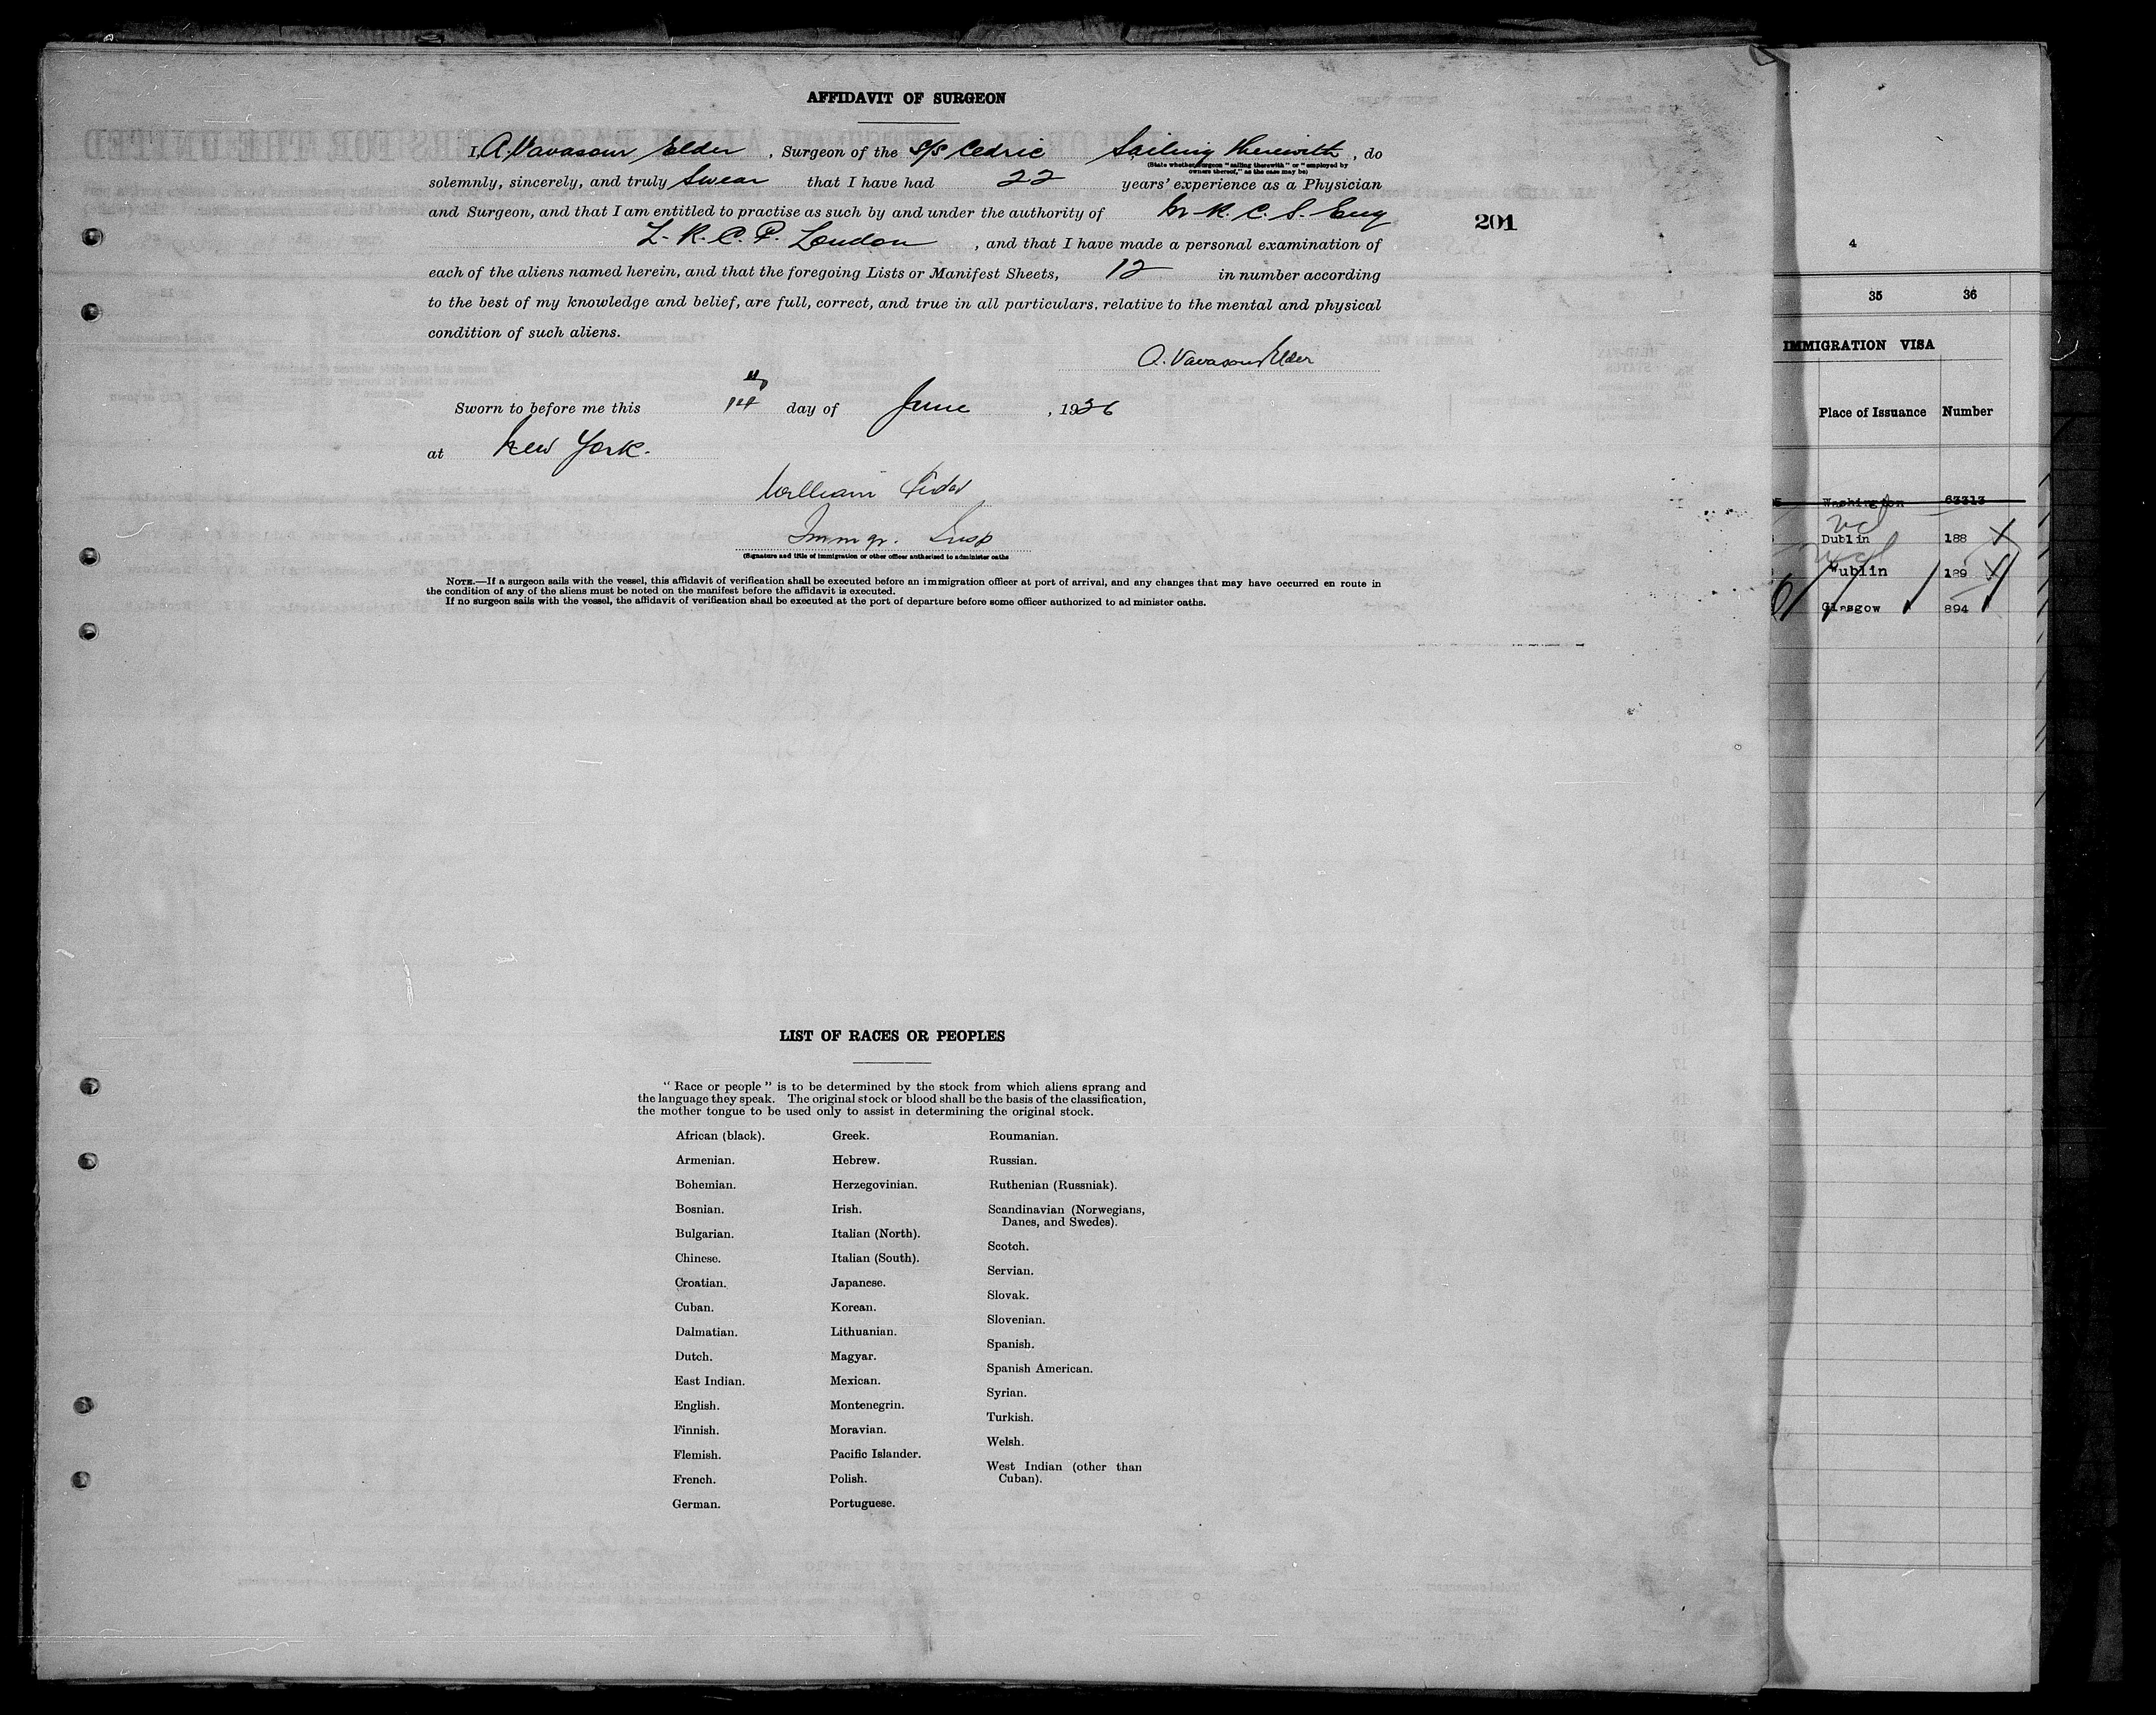 AFFIDAVIT OF SURGEON
I, A. Vavasour Elder, Surgeon of the S/S Cedric Sailing therewith, do
(State whether surgeon "sailing therewith" or "employed by
owners thereof," as the case may be)
solemnly, sincerely, and truly Swear that I have had 22 years' experience as a Physician
and Surgeon, and that I am entitled to practise as such by and under the authority of M. R. C. S. Eng
L. R. C. P. London, and that I have made a personal examination of
each of the aliens named herein, and that the foregoing Lists or Manifest Sheets, 12 in number according
to the best of my knowledge and belief, are full, correct, and true in all particulars, relative to the mental and physical
condition of such aliens.
A. Vavasour Elder
Sworn to before me this day of June, 1926
at New York.
William
Immgr. Insp
(Signature and title of immigration or other officer authorized to administer oaths
NOTE.—If a surgeon sails with the vessel, this affidavit of verification shall be executed before an immigration officer at port of arrival, and any changes that may have occurred en route in
the condition of any of the aliens must be noted on the manifest before the affidavit is executed.
If no surgeon sails with the vessel, the affidavit of verification shall be executed at the port of departure before some officer authorized to ad minister oaths.
201
LIST OF RACES OR PEOPLES
"Race or people" is to be determined by the stock from which aliens sprang and
the language they speak. The original stock or blood shall be the basis of the classification,
the mother tongue to be used only to assist in determining the original stock.
African (black).
Armenian.
Bohemian.
Bosnian.
Bulgarian.
Chinese.
Croatian.
Cuban.
Dalmatian.
Dutch.
East Indian.
English.
Finnish.
Flemish.
French.
German.
Greek.
Hebrew.
Herzegovinian.
Irish.
Italian (North).
Italian (South).
Japanese.
Korean.
Lithuanian.
Magyar.
Mexican.
Montenegrin.
Moravian.
Pacific Islander.
Polish.
Portuguese.
Roumanian.
Russian.
Ruthenian (Russniak).
Scandinavian (Norwegians,
Danes, and Swedes).
Scotch.
Servian.
Slovak.
Slovenian.
Spanish.
Spanish American.
Syrian.
Turkish.
Welsh.
West Indian (other than
Cuban).
4
35 36
IMMIGRATION VISA
Place of Issuance Number
Washington 63313
Dublin 188
Dublin 189
Glasgow 894